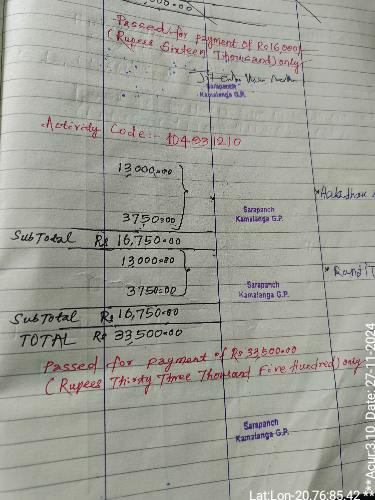 Passed for payment of Rs 16,000/-
(Rupees Sixteen Thousand) only
Sarapanch
Kamalanga G.P.
Activity Code :- 104931210
13,000=00
3750=00
Sarapanch
Kamalanga G.P.
Sub Total Rs 16,750=00
13,000=00
3750=00
Sarapanch
Kamalanga G.P.
Sub Total Rs 16,750=00
TOTAL Rs 33,500=00
Passed for payment of Rs 33,500=00
(Rupees Thirty Three Thousand Five Hundred) only
Sarapanch
Kamalanga G.P.
Lat:Lon-20.76:85.42
***Acur:3.10 Date: 27-11-2024